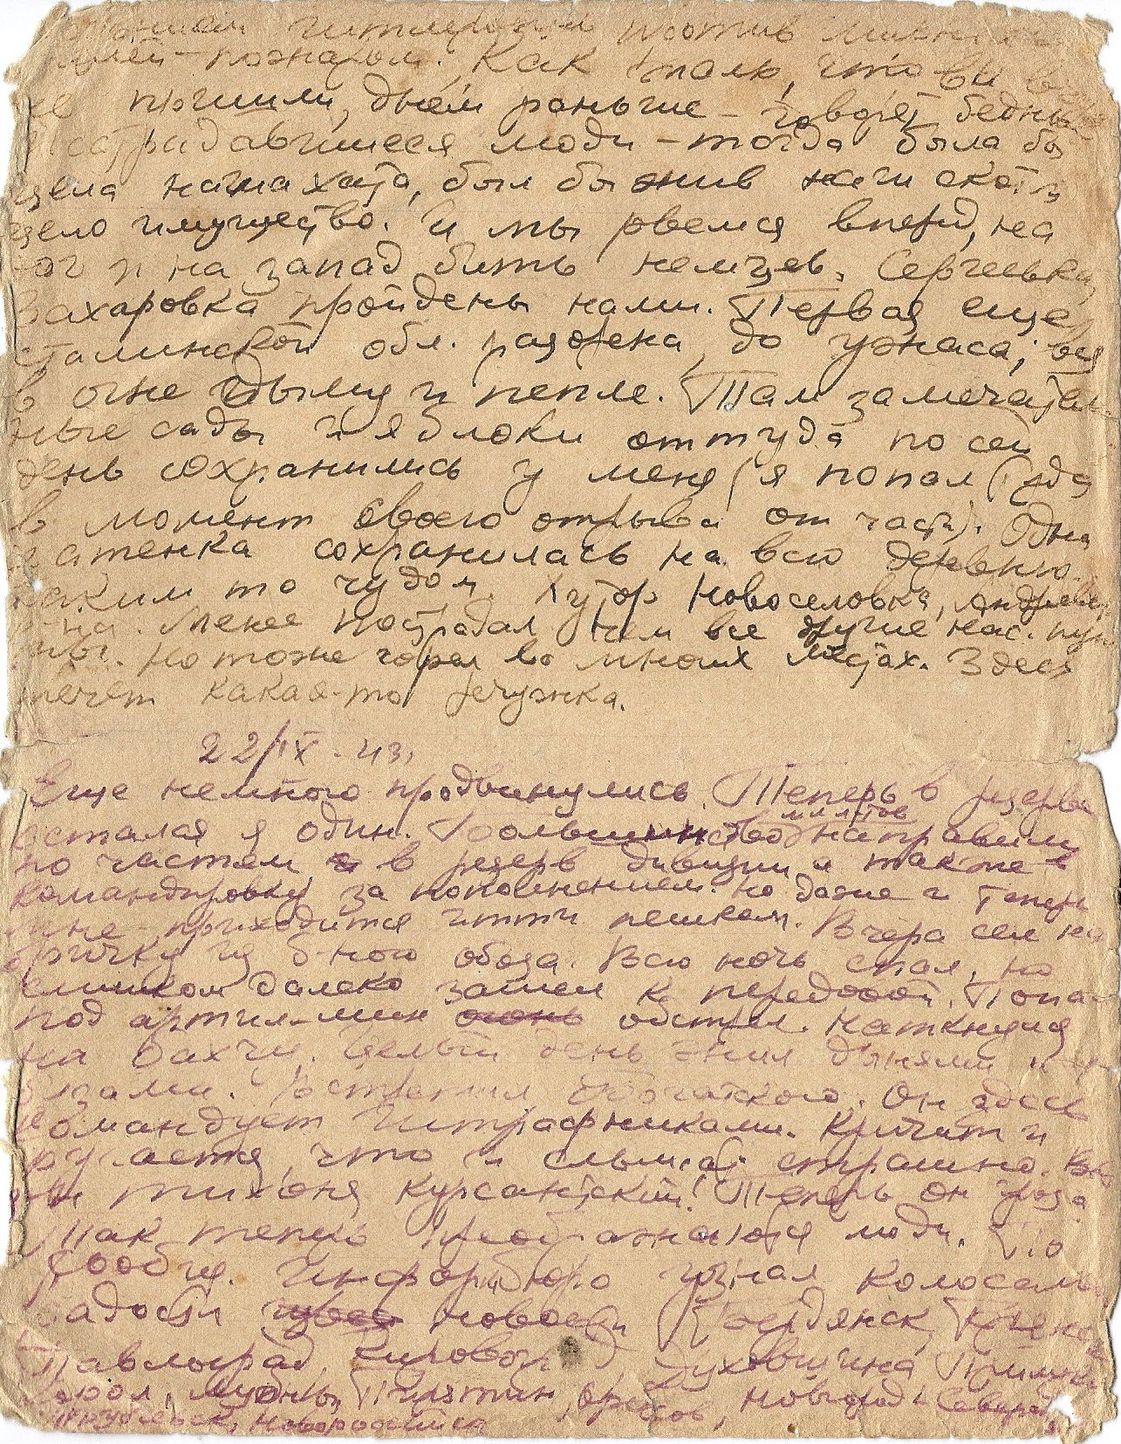 против
пожаром. Как жаль, что вы
не пришли, днем раньше – говорят бедные
пострадавшиеся люди – тогда была бы
цела наша хата, был бы жив наш скот и
цело имущество. И мы рвемся вперед, на
юг и на запад бить немцев. Сергеевка,
Захаровка пройдены нами. Первая еще
сталинской обл. разорена до ужаса; вся
в огне дыму и пепле. Там замечатель
ные сады и яблоки оттуда по сей
день сохранились у меня (я попал туда
в момент своего отрыва от части). Одна
хатенка сохранилась на всю деревню
каким то чудом. Хутор Новоселовка,
менее пострадал чем все другие нас. пунк
ты. Но тоже горел во многих местах. Здесь
течет какая-то речушка.
22/IX - 43.
Еще немного продвинулись. Теперь в резерве
остался я один. Большинство направили
по частям, в резерв дивизии а также в
командировку за пополнением. Но даже и теперь
мне приходится итти пешком. Вчера сел на
бричку из б-ного обоза. Всю ночь спал, но
слишком далеко заехал к передовой. Попал
под артил-мин обстрел. Наткнулся
на бахчу. Целый день жил дынями и ар
бузами. Встретил. Он здесь
командует штрафниками. Кричит и
ругается, что и слышать страшно. Вот
тихоня курсантский! Теперь он гроза
Так теперь преображаются люди. По
сообщ. Информбюро узнал колоссальной
радости новости Бердянск,
Павлоград, Духовщина, Прилуки
Лубны, Пирятин, Новгород-Северск,
Новороссийск